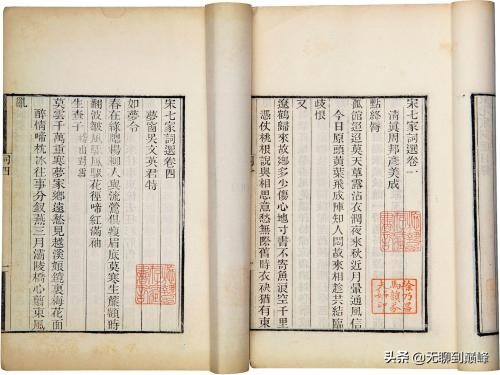 宋七家詞選卷一
清真周邦彥美成
點絳脣
孤館迢迢莫天草露沾衣潤夜來秋近月暈通風信
今日原頭黃葉飛成陣知人悶故來相趁共結臨
歧恨
又
遼鶴歸來故鄉多少傷心地寸書不寄魚浪空千里
憑仗桃根說與相思意愁無際舊時衣袂猶有東
徐乃昌馬韻芬夫婦印
宋七家詞選卷四
夢窗吳文英君特
如夢令
春在綠窗楊柳人與流鶯俱瘦眉底莫寒生簾額時
翻波皺風驟風驟花徑啼紅滿袖
生查子 稽山對雪
莫雲千萬重寒夢家鄉遠愁見越溪娘鏡裏梅花面
醉情啼枕冰往事分釵燕三月灞陵橋心翦東風
亂
詞四
头条 @无聊到巅峰